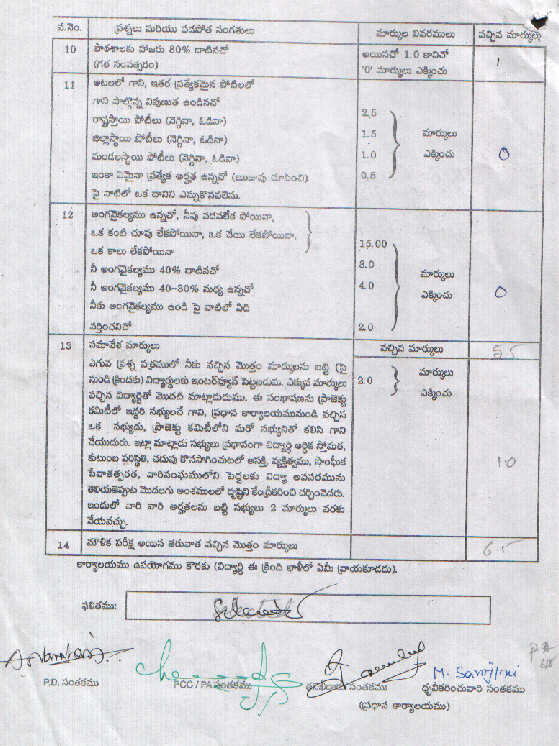 వ.నెం. ప్రశ్నలు మరియు పడపోత సంగతులు మార్కుల వివరములు వచ్చిన మార్కులు
10 పాఠశాలకు హాజరు 80% దాటినచో అయినచో 1.0 కానిచో 1
(గత సంవత్సరం) '0' మార్కులు ఎక్కించు
11 ఆటలలో గాని, ఇతర ప్రత్యేకమైన పోటీలలో
గాని పాల్గొన్న నిపుణుత ఉండినచో
రాష్ట్రస్థాయి పోటీలు (నెగ్గినా, ఓడినా) 2.5
జిల్లాస్థాయి పోటీలు (నెగ్గినా, ఓడినా) 1.5 మార్కులు
మండలస్థాయి పోటీలు (నెగ్గినా, ఓడినా) 1.0 ఎక్కించు 0
ఇంకా ఏమైనా ప్రత్యేక అర్హత ఉన్నచో (ఋజువు చూపించి) 0.5
పై వాటిలో ఒక దానిని ఎన్నుకొనవలెను.
12 అంగవైకల్యము ఉన్నచో, నీవు నడవలేక పోయినా,
ఒక కంటి చూపు లేకపోయినా, ఒక చేయి లేకపోయినా,
ఒక కాలు లేకపోయినా 15.00
నీ అంగవైకల్యము 40% దాటినచో 8.0 మార్కులు
నీ అంగవైకల్యము 40-30% మధ్య ఉన్నచో 4.0 ఎక్కించు 0
నీకు అంగవైకల్యము ఉండి పై వాటిలో ఏది
వర్తించనిచో 2.0
13 సమావేశ మార్కులు వచ్చిన మార్కులు 55
ఎగువ ప్రశ్న పత్రములో నీకు వచ్చిన మొత్తం మార్కులను బట్టి (పై మార్కులు
నుండి క్రిందకు) విద్యార్థులకు ఇంటర్వ్యూవ్ పెట్టబడును. ఎక్కువ మార్కులు 2.0
వచ్చిన విద్యార్థితో మొదట మాట్లాడుదుము. ఈ సంభాషణను ప్రాజెక్టు ఎక్కించు
కమిటీలో ఇద్దరి సభ్యులచే గాని, ప్రధాన కార్యాలయమునుండి వచ్చిన
ఒక సభ్యుడు, ప్రాజెక్టు కమిటీలోని మరో సభ్యునితో కలిసి గాని
చేయుదురు. ఇట్లా మాట్లాడు సభ్యులు ప్రధానంగా విద్యార్థి ఆర్థిక స్తోమత,
కుటుంబ పరిస్థితి, చదువు కొనసాగించుటలో ఆసక్తి, వ్యక్తిత్వము, సాంఘిక
సేవాతత్పరత, వారివంఘములోని పెద్దలకు విద్యా అవసరమును 10
తెలియజెప్పుట మొదలగు అంశములలో దృష్టిని కేంద్రీకరించి చర్చించెదరు.
ఇందులో వారి వారి అర్హతలను బట్టి సభ్యులు 2 మార్కులు వరకు
వేయవచ్చు.
14 మౌఖిక పరీక్ష అయిన తరువాత వచ్చిన మొత్తం మార్కులు 65
కార్యాలయము ఉపయోగము కొరకు (విద్యార్థి ఈ క్రింది ఖాళీలో ఏమీ వ్రాయకూడదు).
ఫలితము:
M. Sarojini
P.D. సంతకము PCC / PA సంతకము సంతకము ధృవీకరించువారి సంతకము
(ప్రధాన కార్యాలయము)